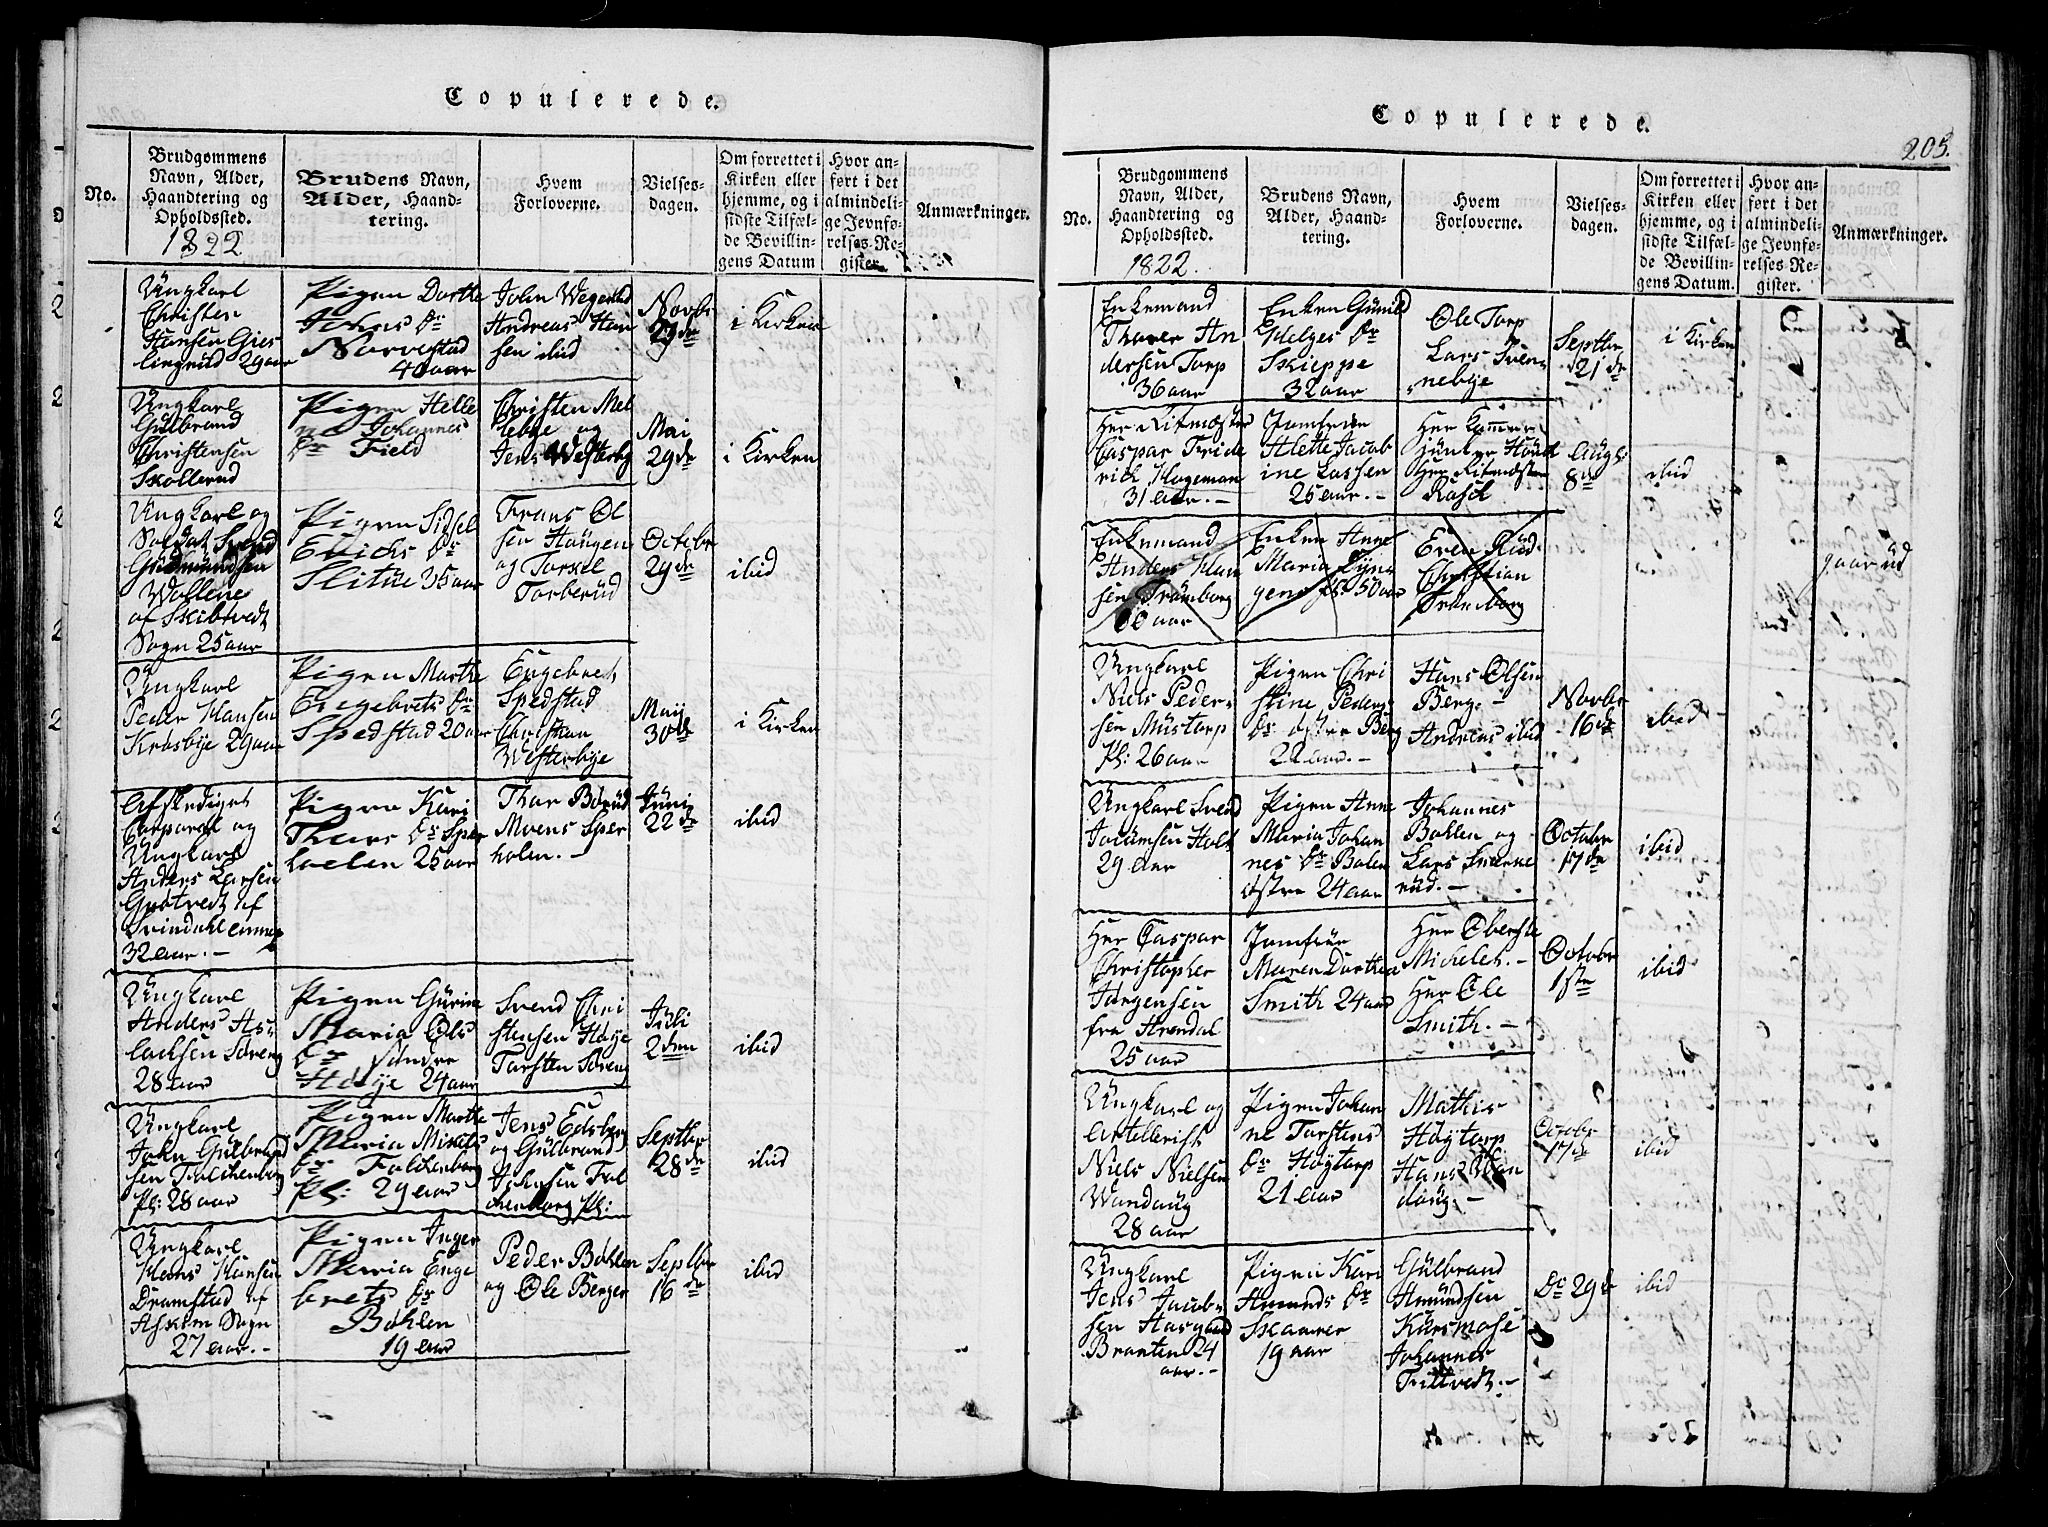 Copulerede.
No.
Brudgommens Navn, Alder, Haandtering og Opholdssted.
1822
Brudens Navn, Alder, Haandtering.
Hvem Forloverne.
Vielsesdagen.
Om forrettet i Kirken eller hjemme, og i sidste Tilfælde Bevillingens Datum
Hvor anført i det almindelige Jevnførelses-Register.
Anmærkninger.
Ungkarl
Christen
Hansen Gies
lingrud 29 aar
Pigen Dorthe
Johns Dr
Norvestad
40 aar
John
Andreas Han
sen ibid
Novbr
29de
i Kirken
Ungkarl
Gülbrand
Christensen
Skollerud
Pigen Helle
ne Johannes
Dr Field
Christen Mel
lebye og
Jens Westerby
Mai
29de
i Kirken
Ungkarl og
Soldat Svend
Gudmundsen
Wollene
af Skibtvedt
Sogn 25 aar
Pigen Sidsel
Erichs Dr
Slitüe 35 aar
Frans Ol
sen Haugen
og Torkel
Torberüd
Octobr
29de
ibid
Ungkarl
Peder Hansen
Krosbye 29 aar
Pigen Marthe
Engebrets Dr
Spedstad 20 aar
Engebret
Spedstad
Christian
Westerbye
Maij
30de
i Kirken
Afskediget
Corporal og
Ungkarl
Anders Larsen
Grøtvedt af
Svindahl annex
32 aar.-
Pigen Kari
Thors Dr Sper
hoelen 25 aar
Thor Børüd
Moens Sper
holen.-
Jüni
22de
ibid
Ungkarl
Anders As
lachsen Søreng
28 aar
Pigen Gürine
Maria Ols
Dr søndre
Høye 24 aar
Svend Chri
stensen Høye
Torsten Søreng
Jüli
2den
ibid
Ungkarl
John Gülbrand
sen Falchenborg
Pl: 28 aar
Pigen Marthe
Maria Mikels
Dr Falchenborg
Pl: 29 aar
Jens Edsberg
og Gülbrand
Johnsen Fal
chenborg Pl:
Septbr
28de
ibid
Ungkarl
Hans Hansen
Dramstad af
Askim Sogn
27 aar.-
Pigen Inger
Maria Enge
brets Dr
Bøhlen
19 aar
Peder Bøhlen
og Ole Berger
Septbr
16de
ibid
Copulerede.
205.
No.
Brudgommens Navn, Alder, Haandtering og Opholdssted.
1822.
Brudens Navn, Alder, Haandtering.
Hvem Forloverne.
Vielsesdagen.
Om forrettet i Kirken eller hjemme, og i sidste Tilfælde Bevillingens Datum.
Hvor anført i det almindelige Jevnførelses-Register.
Anmærkninger.
Enkemand
Thorer An
dersen Torp
36 aar
Enken Gunild
Helges Dr
Skieppe
32 aar
Ole Torp
Lars Sven
nebye
Septbr
21de
i Kirken
Her Ritmester
Caspar Fride
rich Hageman
31 aar.-
Jomfrue
Alette Jacob
ine Lassen
25 aar.-
Her Kammer
junker Høüch
Her Ritmester
Rasch
Augt:
8de
ibid
Enkemand
Anders Han
sen Trømborg
60 aar
Enken Anne
Maria
50 aar
Even Rüd
Christian
Trømborg
gaar üd
Ungkarl
Niels Peder
sen Müstorp
Pl: 26 aar
Pigen Chri
stine Peders
Dr østre Berg
22 aar.-
Hans Olsen
Berg.-
Andreas ibid
Novbr
16de
ibid
Ungkarl Svend
Jocumsen Holt
29 aar
Pigen Anne
Maria Johan
nes Dr Bolen
østre 24 aar
Johannes
Bohlen og
Lars Snerke
rüd.-
Octobr
17de
ibid
Her Caspar
Christopher
Jørgensen
fra Arendal
25 aar
Jomfrüe
Maren Dorthea
Smith 24 aar
Her Oberste
Michelet.-
Her Ole
Smith.-
Octobr
1ste
ibid
Ungkarl og
Artellerist
Niels Nielsen
Wandaug
28 aar
Pigen Johan
ne Torstens
Dr Høytorp
21 aar
Mathis
Høytorp
Hans Wan
daug.-
Octobr
17de
ibid
Ungkarl
Jens Jacob
sen Aasgaard
Branten 24
aar.-
Pigen Kari
Amunds Dr
Skanner
19 aar
Gülbrand
Amündsen
Kürsmose
Johannes
Trittvedt.-
Do 29d
ibid